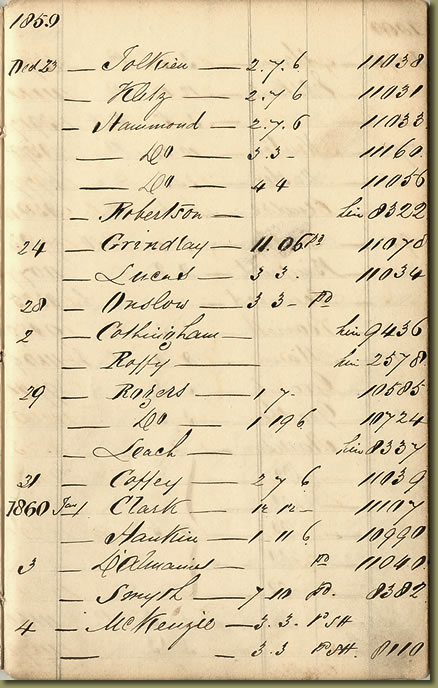 1859
Dec 23 — Tolkien — 2. 7. 6 11038
— — 2. 7 6 11031
— Hammond — 2. 7. 6 11033
— Do — 3. 3 - 11160.
— Do — 4 4 11056
— Robertson — hire 8322
24 — Grindlay — 11. 0 6 Pd 11078
— Lucas — 3 3. 11034
28 — Onslow — 3 3 - Pd
2 — Cottingham — hire 9436
— Roffy — hire 2578
29 — Rogers — 1 7 - 10585
— Do — 1 19 6 10724
— Leach — hire 8337
31 — Coffey — 2 7 6. 11039
1860 Jany 1 — Clark — 12 12 — 11107
— Hankin — 1 11 6 10990
3 — D'Almaine — Pd 11040
— Smyth — 7 10 Pd. 8382
4 — McKenzie — 3. 3. P SH
— — 3. 3 P SH. 8110